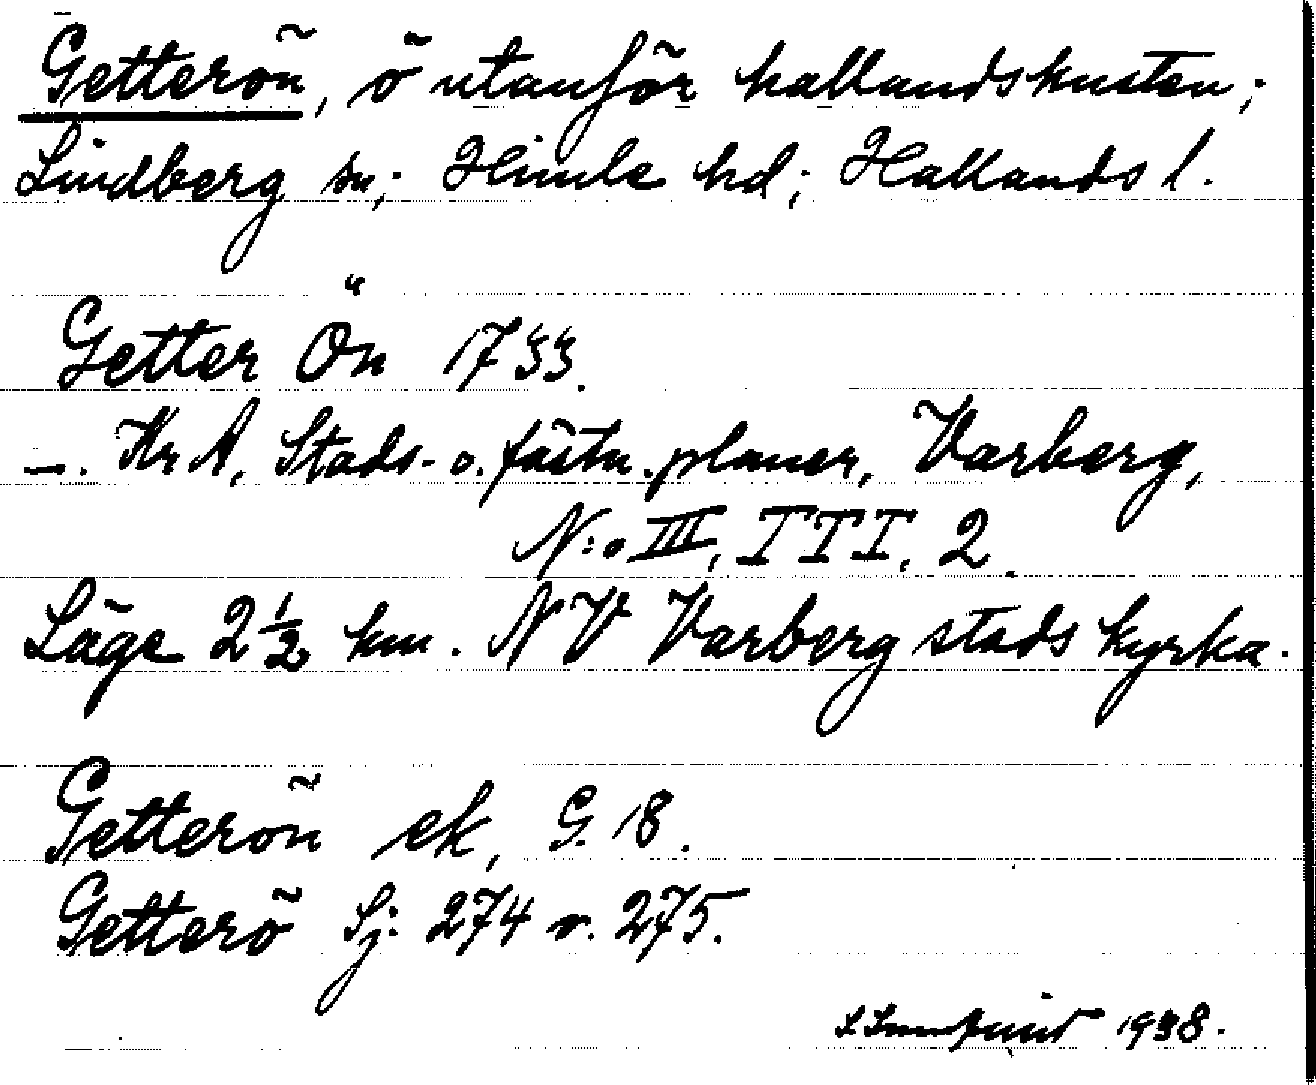 Getterön, ö utanför hallandskusten;
Lindberg sn; Himle hd; Hallands l.
Getter Ön 1733.
—. Kr A, Stads- o. fästn. planer, Varberg,
N:o III, TTT, 2.
Läge 2½ km. NV Varberg stads kyrka.
Getterön ek, G. 18.
Getterö Sj: 274 o. 275.
1938.